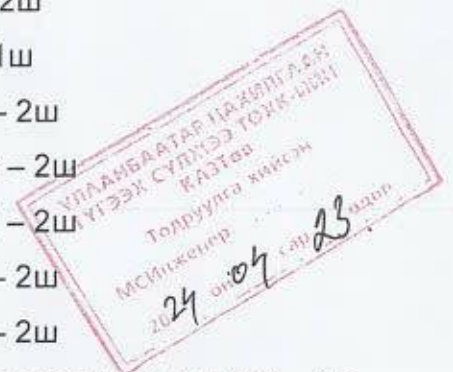 2ш
1ш
- 2ш
– 2ш
– 2ш
- 2ш
- 2ш
УЛААНБААТАР ЦАХИЛГААН
ТҮГЭЭХ СҮЛЖЭЭ ТӨХК-ИЙН
Тодруулга хийсэн
МСИнженер
2024 он 04 сар 23 өдөр